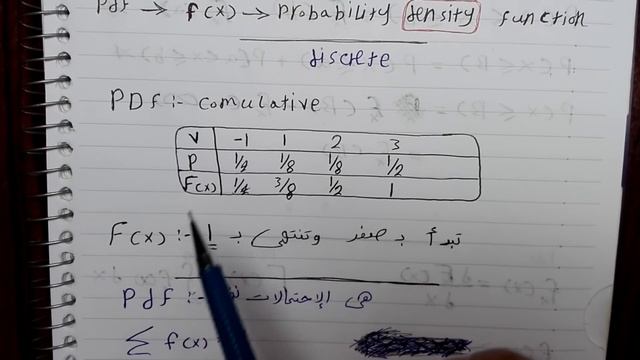 Pdf → f(x) → Probability density function
discrete
PDf :- comulative
V -1 1 2 3
P 1/4 1/8 1/8 1/2
F(x) 1/4 3/8 1/2 1
F(x) :- تبدأ بـ صفر وتنتهي بـ 1
Pdf :- هي الإحتمالات
Σ f(x)